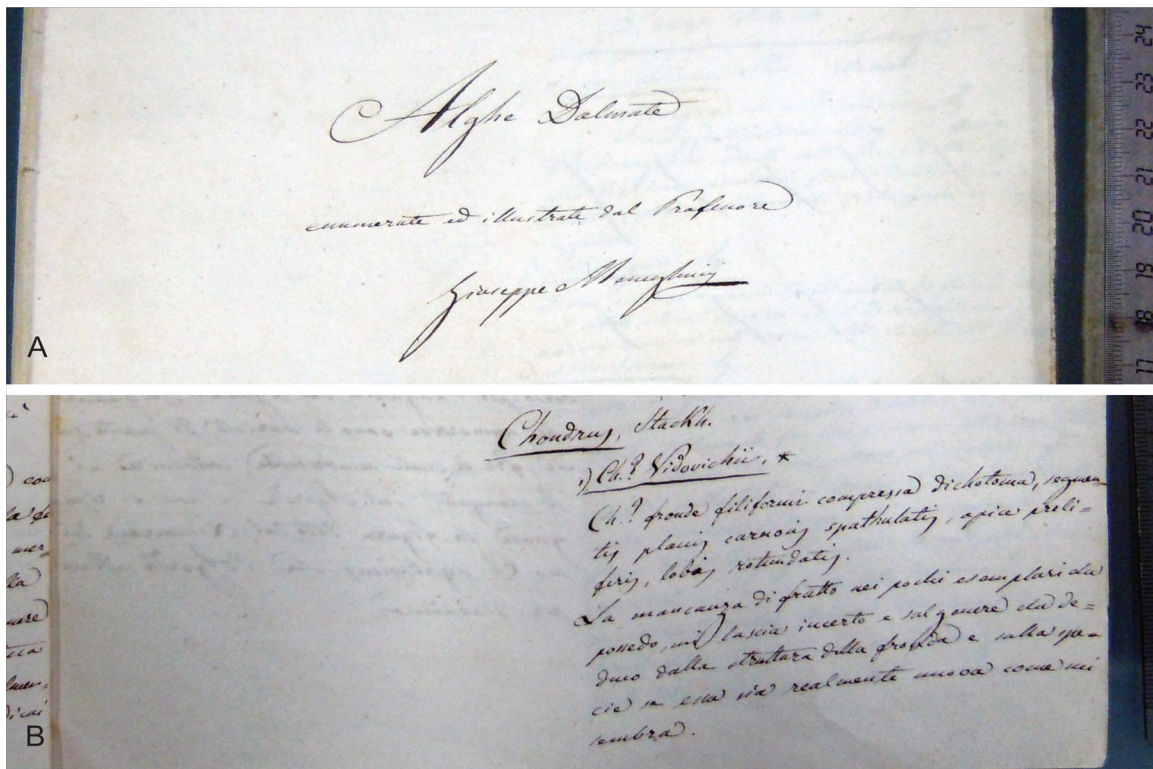 Alghe Dalmate
enumerate ed illustrate dal Professore
Giuseppe Meneghini
A
24
23
22
21
20
19
18
17
Chondrus, Stackh.
1) Ch.? Vidovichii, *
Ch.? fronde filiformi compressa dichotoma, segmen_
tis planis carnosis spathulatis, apice proli=
feris, lobis rotundatis.
La mancanza di frutto nei pochi esemplari che
possedo, mi lascia incerto e sul genere che de=
duco dalla struttura della fronda e sulla spe=
cie se essa sia realmente nuova come mi
sembra.
B